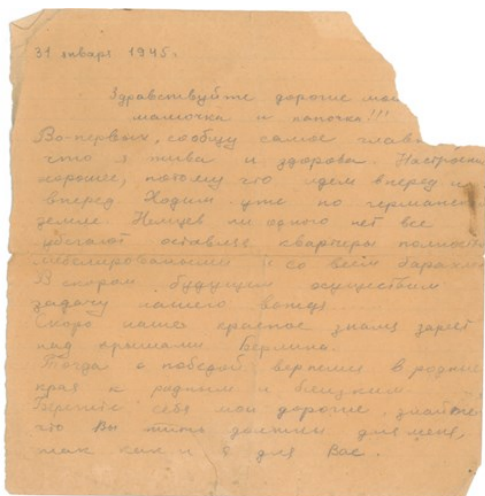 31 января 1945г.
Здравствуйте дорогие мои
мамочка и папочка!!!
Во-первых, сообщу самое глав
что я жива и здорова. Настроени
хорошее, потому что идем вперед и
вперед Ходим уже по германск
земле Немцев ни одного нет все
убегают оставляя квартиры полност
меблированными и со всем барахл
В скором будущем осуществим
задачу нашего вождя
Скоро наше красное знамя зареет
над крышами Берлина.
Тогда с победой вернемся в родные
края к родным и близким
Берегите себя мои дорогие, знайте
что Вы жить должны для меня,
так как и я для Вас.